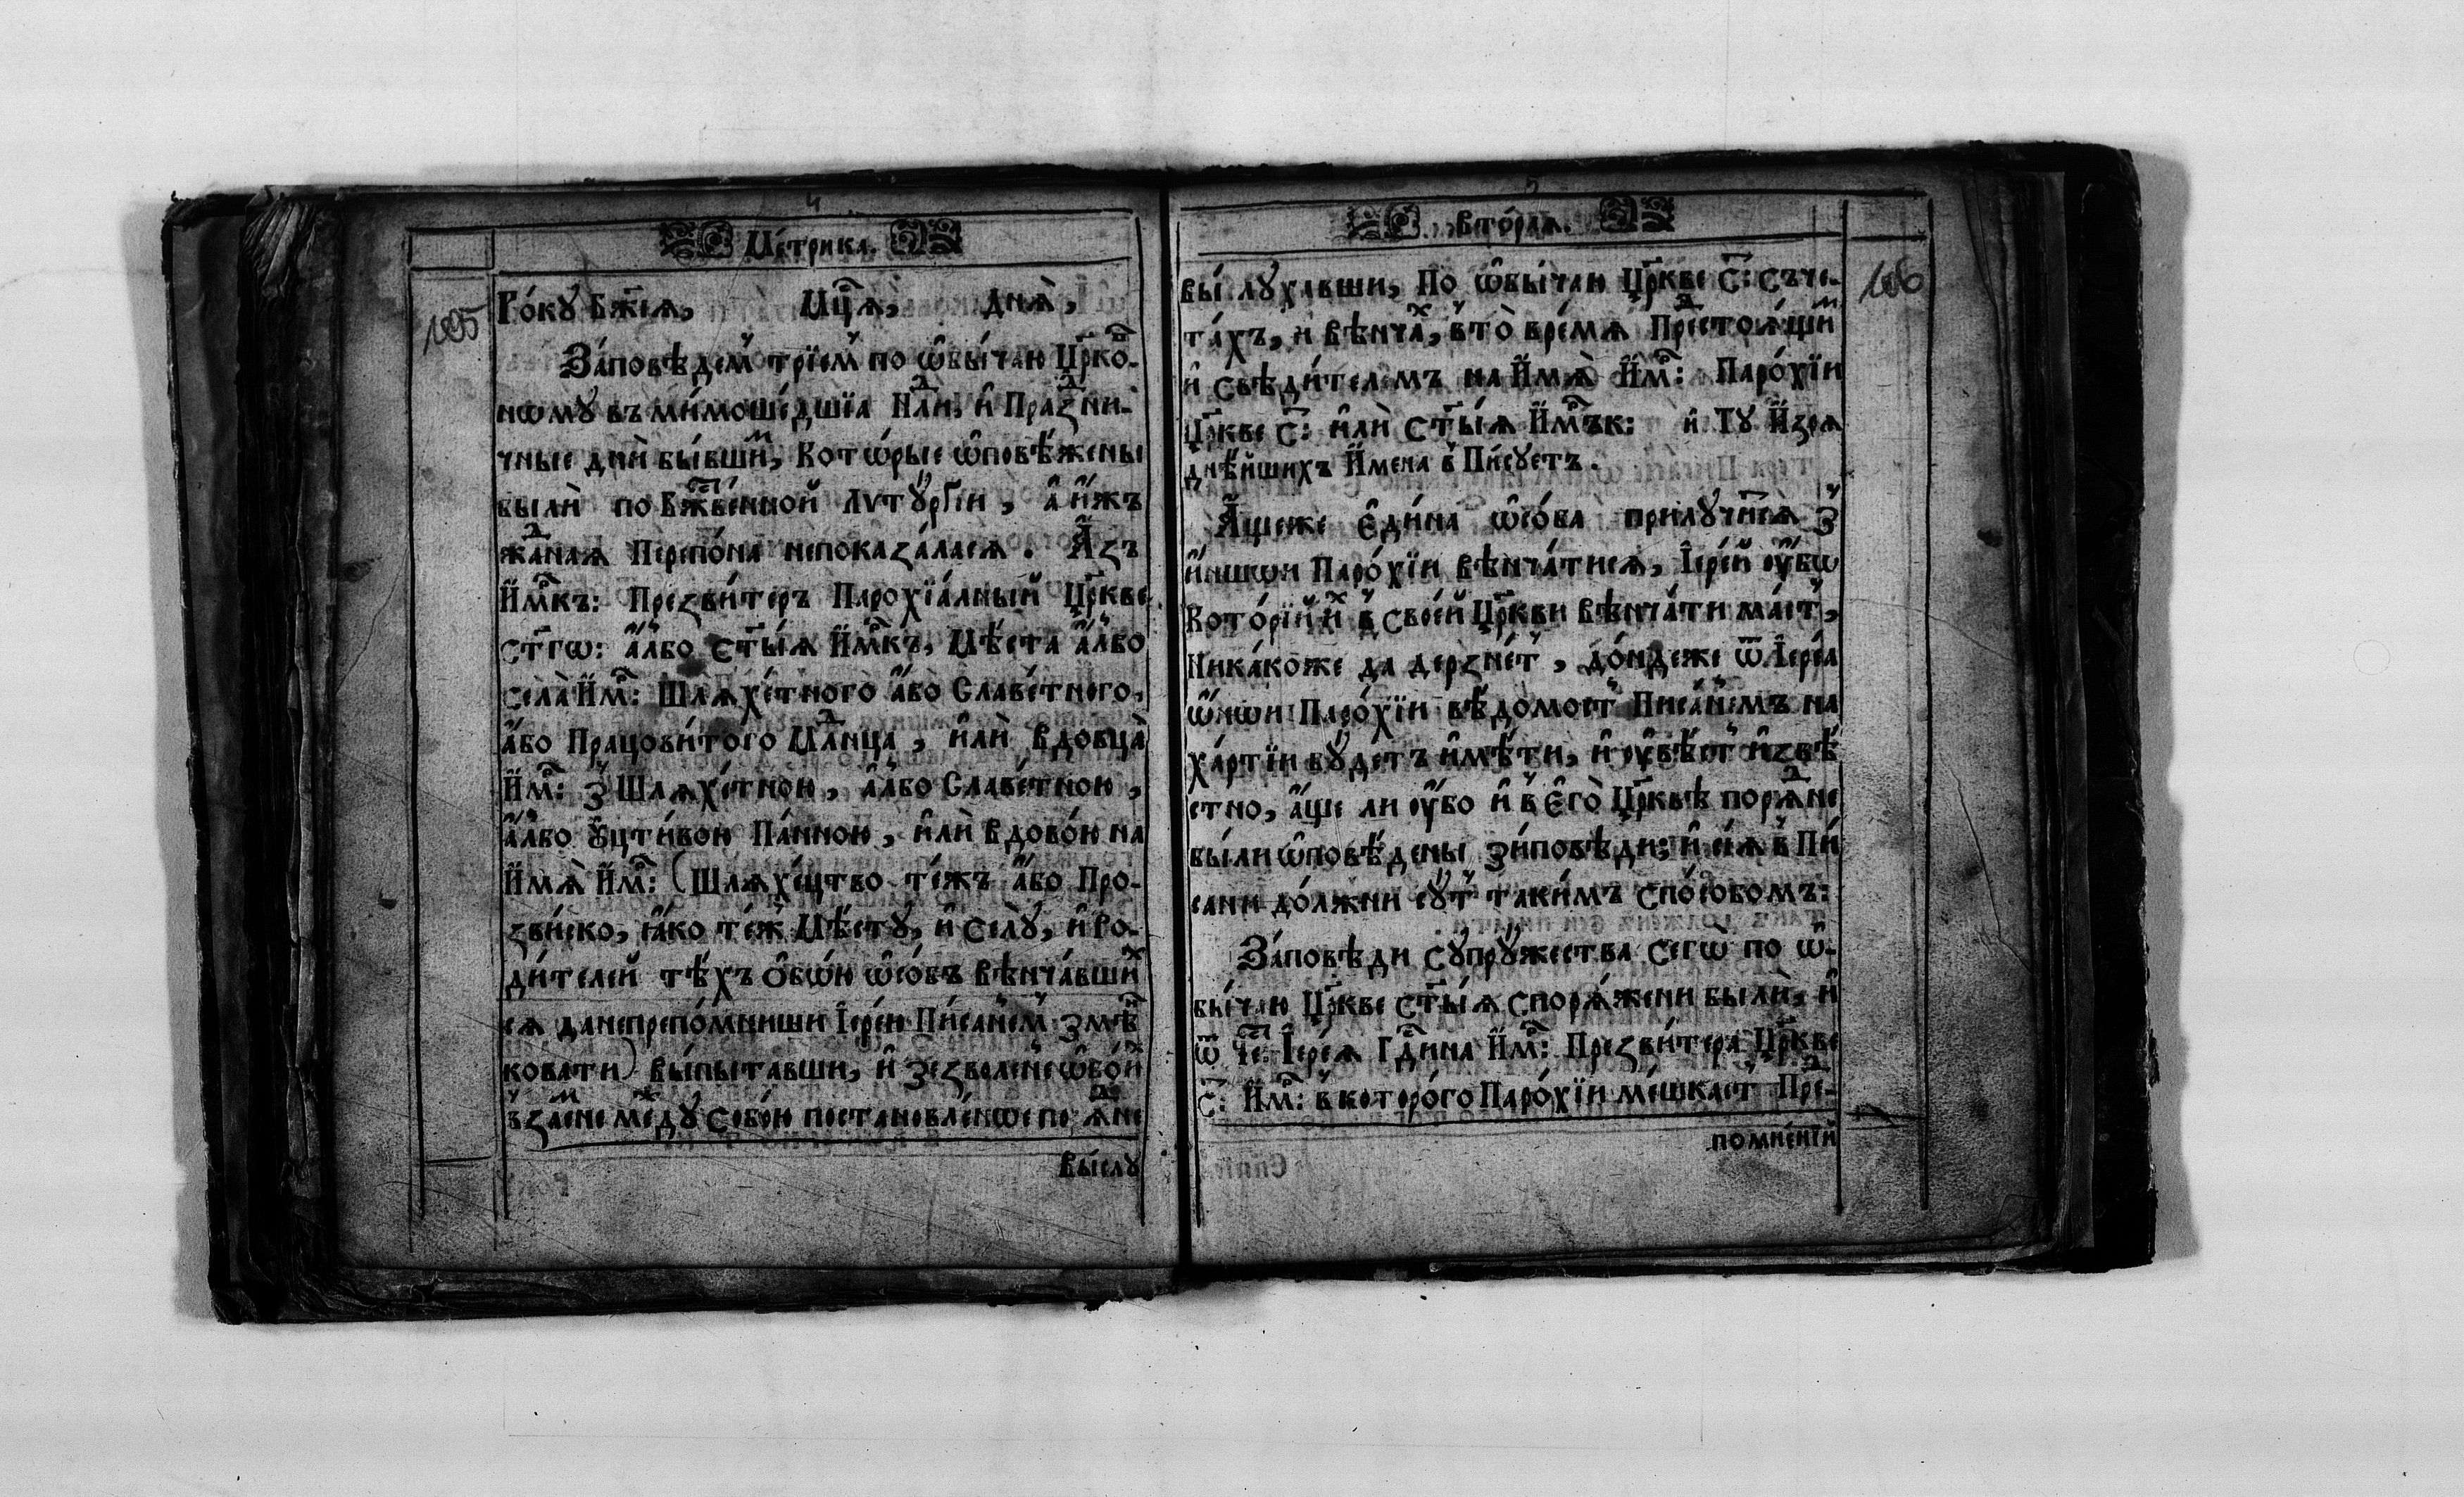 4
Ме́трика.
105
Ро́кꙋ Бж҃їѧ, Мц҃ѧ, днѧ̀,
За́повѣдем трїем по ѡ҆бы́чаю Цр҃ко-
нѡмꙋ въ ми́мошедшїа Нⷣли, и҆ Праⷥни-
чные днѝ бы́вши, Кото́рые ѡ҆повѣ́жены
былѝ по Бж҃ве́нной Лѵтꙋ́ргїи, а҆ и҆́жъ
жаⷣнаѧ Перепо́на непоказа́ласѧ. А҆́зъ
И҆м҃къ: Презви́теръ Парохїа́лный Цр҃кве
ст҃гѡ: а҆́лбо ст҃ы́ѧ И҆м҃къ, Мѣ́ста а҆́лбо
села̀ И҆м҃: Шлѧхе́тного а҆́бо Славе́тного,
а҆́бо Працови́того Млⷣнца, и҆лѝ вдовца̀
И҆м҃: з Шлѧхе́тною, а҆́лбо Славе́тною,
а҆́лбо Ꙋ҆цти́вою Па́нною, и҆лѝ вдово́ю на
И҆мѧ̀ И҆м҃: (Шлѧхе́цтво те́жъ а҆́бо Про-
зви́ско, ꙗ҆́ко те́ж Мѣ́стꙋ, и҆ Селꙋ̀, и҆ Ро-
ди́телей тѣ́хъ Ѻ҆бѡ́и ѡ҆со́бъ вѣнча́вшиⷯ
сѧ данепрепо́мниши І҆ере́ю Писа́нем змѣⷩ
ковати) вы́пытавши, и҆ зезволе́не ѡ҆бо́иⷯ
ъза́емне меⷤдꙋ Собо́ю постановле́нѡе порѧⷣне
вы́слꙋ
5
вто́раѧ.
106
вы́слꙋхавши, По ѡ҆бы́чаю Цр҃кве С҃: съче-
та́хъ, и вѣнчаⷯ, в то̀ вре́мѧ Преⷣстоѧ́щиⷨ
и҆ свѣди́телемъ на И҆мѧ̀ И҆м҃: Паро́хїи
Цр҃кве С҃: и҆лѝ ст҃ы́ѧ И҆м҃ък: и҆ Тꙋ И҆зрѧ
днѣ́йшихъ И҆мена в Пи́сꙋетъ.
А҆́щеже є҆ди́на ѡ҆со́ба прилꙋчи́тсѧ з
и҆́ншои Паро́хїи вѣнча́тисѧ, І҆ере́й ᲂу҆́бѡ
Кото́рїй иⷯ в свое́й Цр҃кви вѣнча́ти ма́ет,
Ника́коже да дерзне́т, до́ндеже ѿ І҆ере́а
ѡ҆́нѡи Паро́хїи вѣ́домост Писа́нїемъ на
ха́ртїи бꙋ́детъ и҆мѣ́ти, и҆ ᲂу҆вѣ́ст и҆звѣ́
стно, а҆́ще ли ᲂу҆́бо и҆ в є҆го̀ Цр҃квѣ порѧⷣне
бы́ли ѡ҆повѣ́дены за́повѣди; и҆ сїѧ̀ в Пи́
сани до́лжни сꙋ́т таки́мъ спо́собомъ:
За́повѣди сꙋпрꙋ́жества сегѡ̀ по ѡ҆-
бы́чаю Цр҃кве ст҃ы́ѧ спорѧ́жени былѝ, и҆
ѿ че҃: І҆ере́ѧ Гд҃ина И҆м҃: Презви́тера Цр҃кве
С҃: И҆м҃: в кото́рого Паро́хїи ме́шкает Преⷣ-
помне́нїй